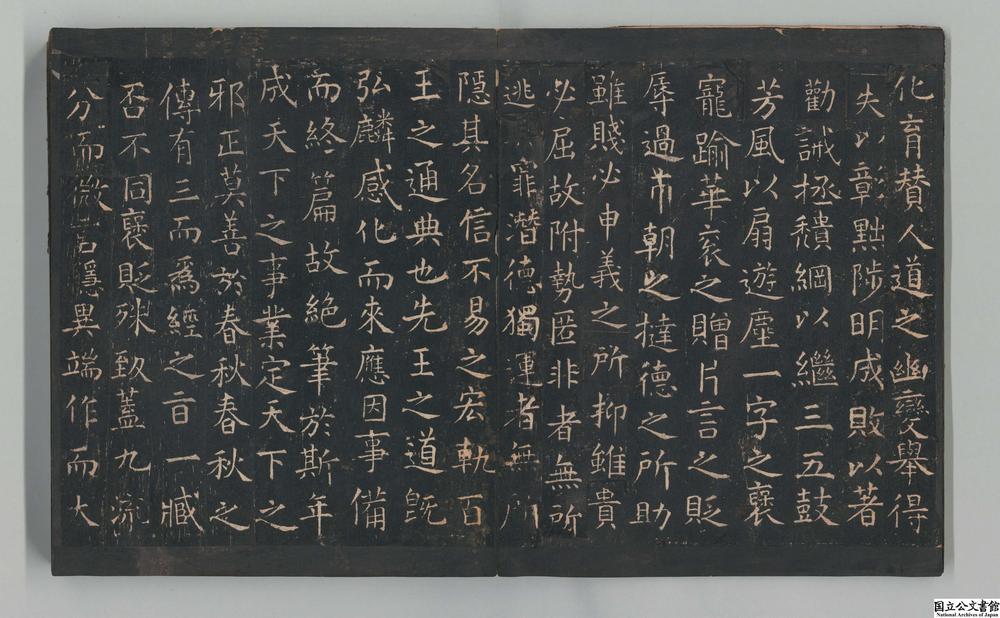 化育贊人道之幽變舉得
失以彰黜陟明成敗以著
勸誡拯頹綱以繼三五鼓
芳風以扇遊塵一字之襃
寵踰華衮之贈片言之貶
辱過市朝之撻德之所助
雖賤必申義之所抑雖貴
必屈故附勢匿非者無所
逃罪潛德獨運者無所
隱其名信不易之宏軌百
王之通典也先王之道既
弘麟感化而來應因事備
而終篇故絕筆於斯年
成天下之事業定天下之
邪正莫善於春秋春秋之
傳有三而為經之旨一臧
否不同襃貶殊致蓋九流
分而微言隱異端作而大
国立公文書館
National Archives of Japan